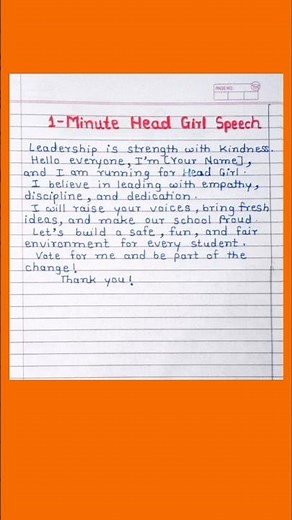 PAGE NO.:
1-Minute Head Girl Speech
Leadership is strength with kindness.
Hello everyone, I'm [Your Name],
and I am running for Head Girl.
I believe in leading with empathy,
discipline, and dedication.
I will raise your voices, bring fresh
ideas, and make our school Proud.
Let's build a safe, fun, and fair
environment for every student.
Vote for me and be part of the
change!
Thank you!